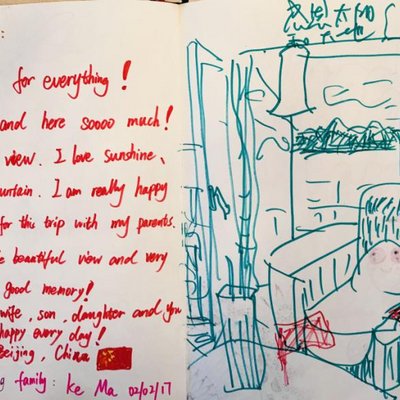 for everything !
and here soooo much!
view. I love sunshine、
untain. I am really happy
for this trip with my parents.
e beautiful view and very
good memory!
wife, son, daughter and you
happy every day!
Beijing, China
g family: Ke Ma 02/02/17
感恩太阳